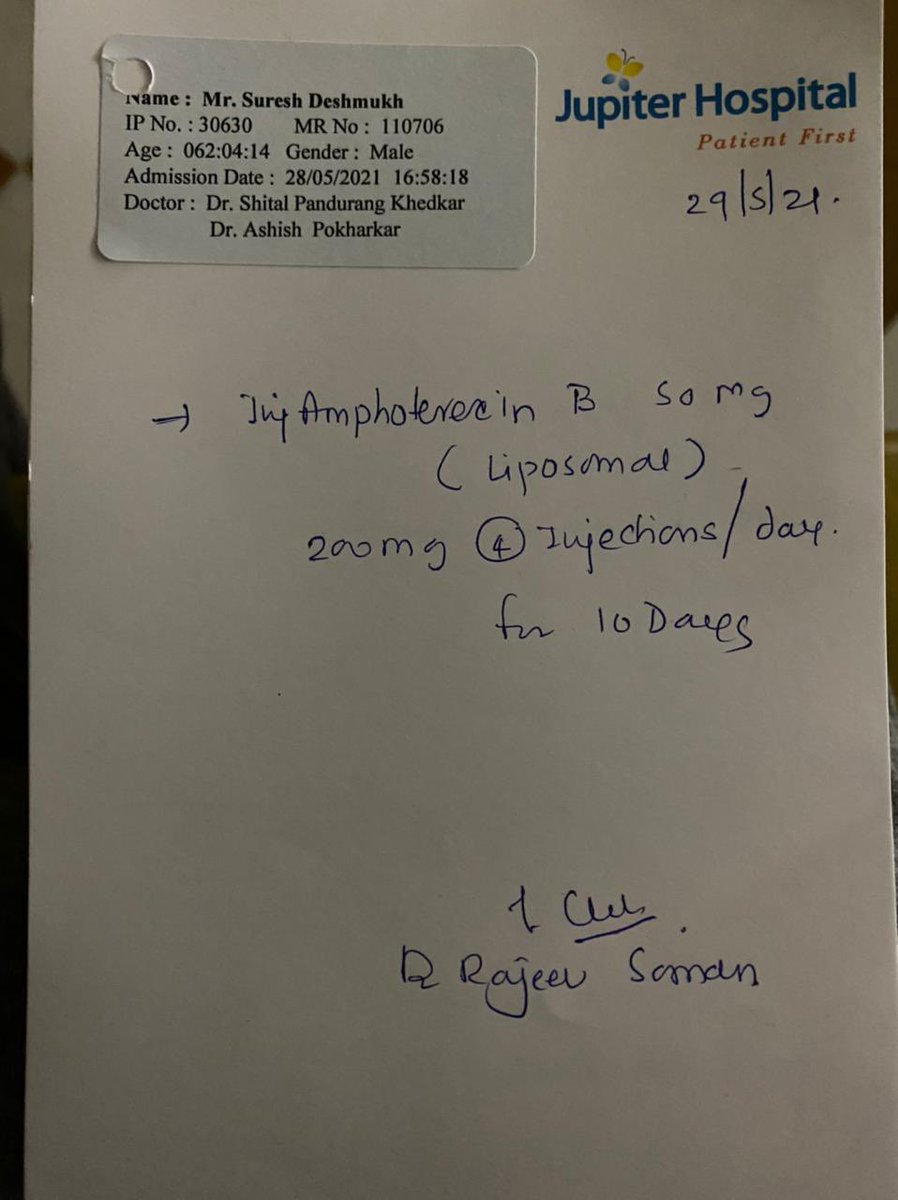 Name : Mr. Suresh Deshmukh
IP No. : 30630 MR No : 110706
Age : 062:04:14 Gender : Male
Admission Date : 28/05/2021 16:58:18
Doctor : Dr. Shital Pandurang Khedkar
Dr. Ashish Pokharkar
Jupiter Hospital
Patient First
29/5/21.
→ Inj Amphoterecin B 50 mg
(Liposomal)
200mg ④ Injections/day.
for 10 Days
Dr Rajeev Soman